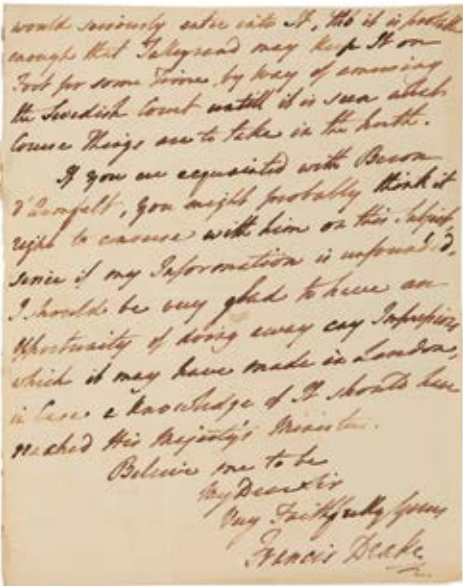 would seriously enter into It, tho' it is probable
enough that Talleyrand may keep It on
Foot for some Time, by way of amusing
the Swedish Court untill it is seen what
Course Things are to take in the North.
If you are acquainted with Baron
d'Armfelt, you might probably think it
right to converse with him on this Subject,
since if my Information is unfounded,
I should be very glad to have an
Opportunity of doing away any Impressions
which it may have made in London,
in Case a Knowledge of It should have
reached His Majesty's Ministers.
Believe me to be
My Dear Sir
Very Faithfully Yours
Francis Drake